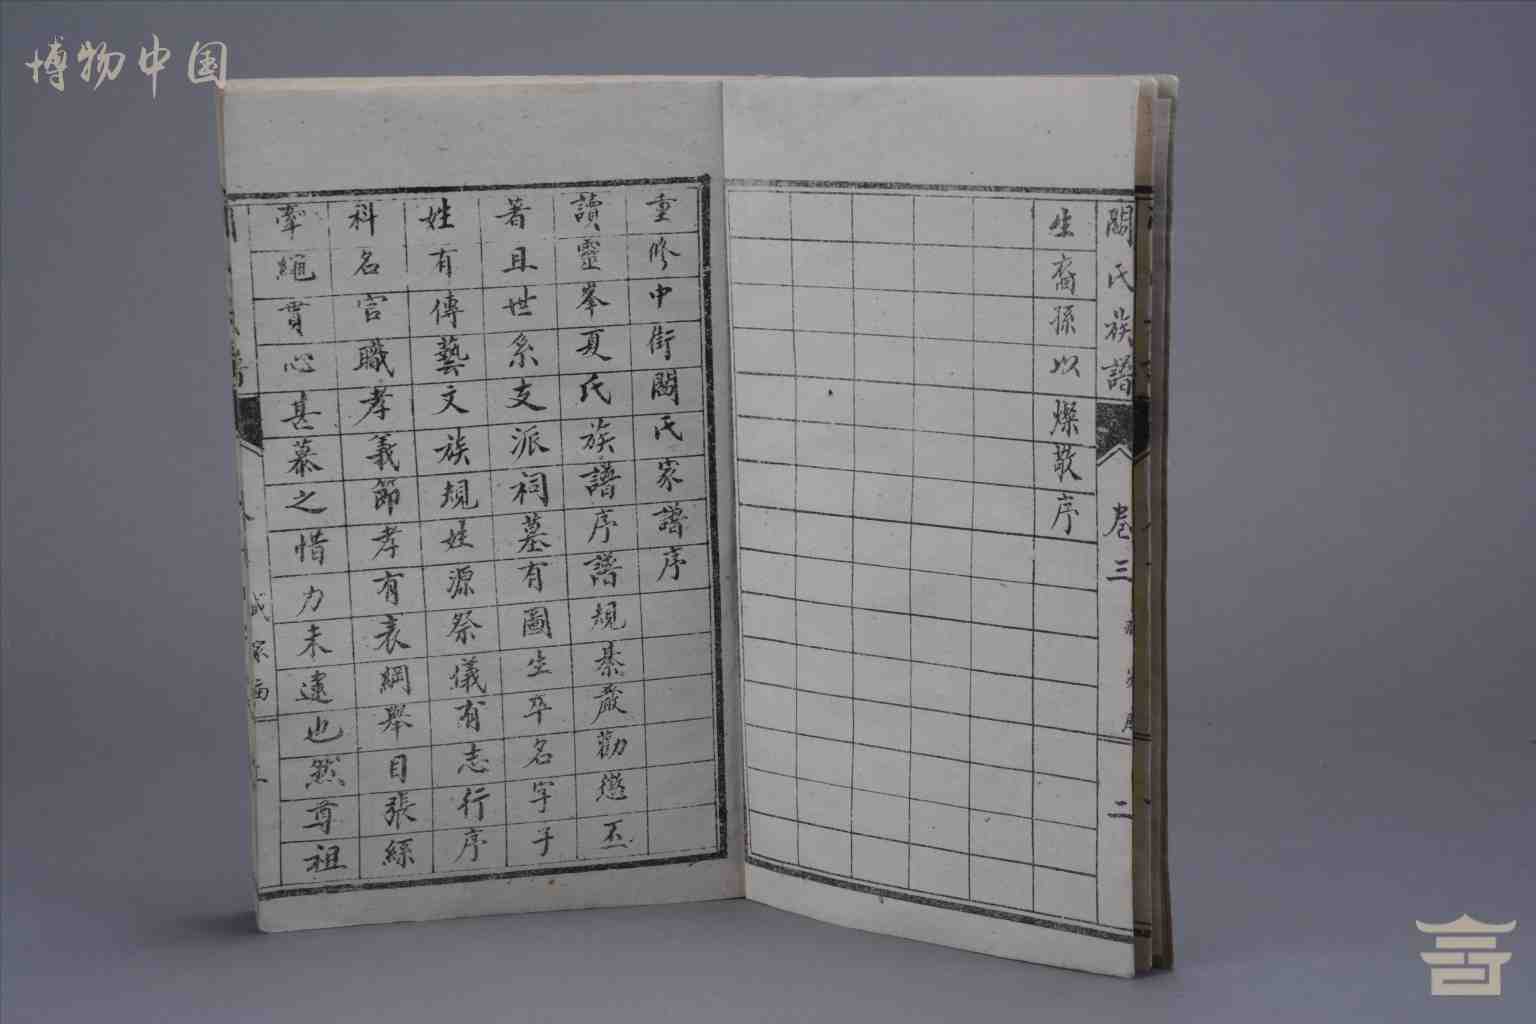 博物中国
闞氏族譜 卷三 二
生裔孫以燦敬序
重修中街闞氏家譜序
讀靈峯夏氏族譜序譜規綦嚴勸懲丕
著且世系支派祠墓有圖生卒名字子
姓有傳藝文族規姓源祭儀有志行序
科名官職孝義節孝有表綱舉目張絲
牽繩貫心甚慕之惜力未逮也然尊祖